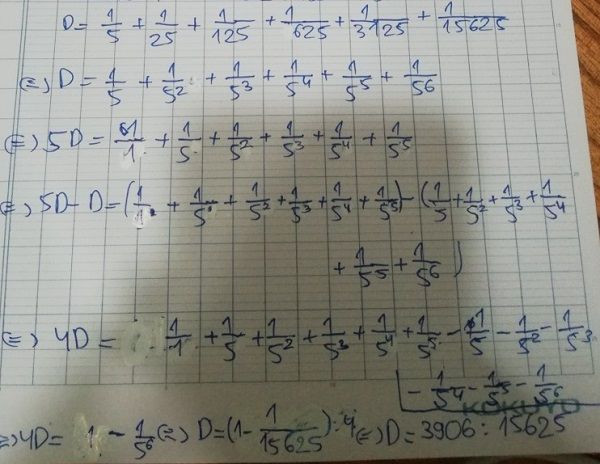 D = 1/5 + 1/25 + 1/125 + 1/625 + 1/3125 + 1/15625
(=) D = 1/5 + 1/5² + 1/5³ + 1/5⁴ + 1/5⁵ + 1/5⁶
(=) 5D = 1/1 + 1/5 + 1/5² + 1/5³ + 1/5⁴ + 1/5⁵
(=) 5D - D = (1/1 + 1/5 + 1/5² + 1/5³ + 1/5⁴ + 1/5⁵) - (1/5 + 1/5² + 1/5³ + 1/5⁴
+ 1/5⁵ + 1/5⁶)
(=) 4D = 1/1 + 1/5 + 1/5² + 1/5³ + 1/5⁴ + 1/5⁵ - 1/5 - 1/5² - 1/5³
- 1/5⁴ - 1/5⁵ - 1/5⁶
KOKUYO
(=) 4D = 1 - 1/5⁶ (=) D = (1 - 1/15625) : 4 (=) D = 3906 : 15625